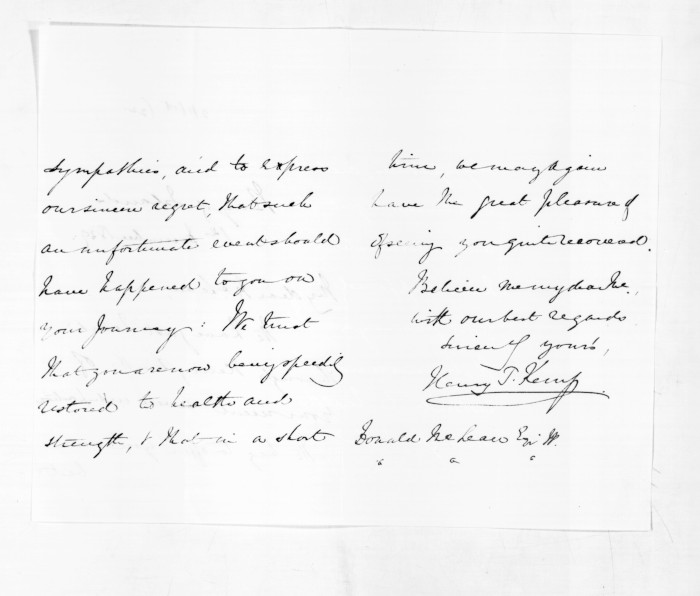 sympathies, and to express
our sincere regret, that such
an unfortunate event should
have happened to you on
your Journey: We trust
that you are now being speedily
restored to health and
strength, & that in a short
time, we may again
have the great pleasure of
of seeing you quite recovered.
Believe me my dear Sir,
with our best regards
sincerely yours,
Henry T. Kemp
Donald McLean Esqr